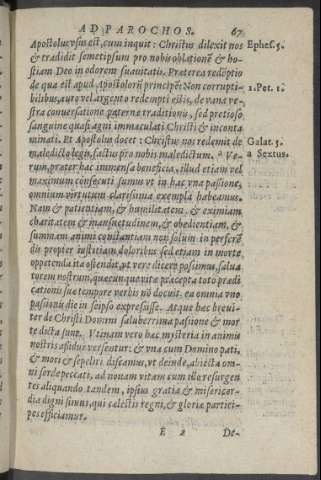 AD PAROCHOS. 67
Apostolus vsus est, cum inquit: Christus dilexit nos Ephes. 5.
& tradidit semetipsum pro nobis oblationē & ho-
stiam Deo in odorem suauitatis. Præterea redēptio
de qua est apud Apostolorū principē: Non corrupti- 1. Pet. 1.
bilibus, auro vel argento redempti estis, de vana ve-
stra conuersatione paternæ traditionis, sed pretioso
sanguine quasi agni immaculati Christi & inconta
minati. Et Apostolus docet: Christus nos redemit de Galat. 3.
maledicto legis, factus pro nobis maledictum. a Ve- a Sextus.
rum, præter hæc immensa beneficia, illud etiam vel
maximum consecuti sumus vt in hac vna passione,
omnium virtutum clarissima exempla habeamus.
Nam & patientiam, & humilitatem, & eximiam
charitatem & mansuetudinem, & obedientiam, &
summam animi constantiam non solum in perferē
dis propter iustitiam doloribus sed etiam in morte
oppetenda ita ostendit, vt vere dicere possimus, salua
torem nostrum, quæcunque vitæ præcepta toto prædi
cationis suæ tempore verbis nō docuit, eu omnia vno
passionis die in seipso expressisse. Atque hæc breui-
ter de Christi Domini saluberrima passione & mor
te dicta sunt. Vtinam vero hæc mysteria in animis
nostris assidue verseatur: & vna cum Domino pati,
& mori & sepeliri discamus, vt deinde, abiecta om-
ni sorde peccati, ad nouam vitam cum illo resurgen
tes aliquando tandem, ipsius gratia & misericor-
dia digni simus, qui cælestis regni, & gloriæ partici-
pes efficiamur.
E 2 De-